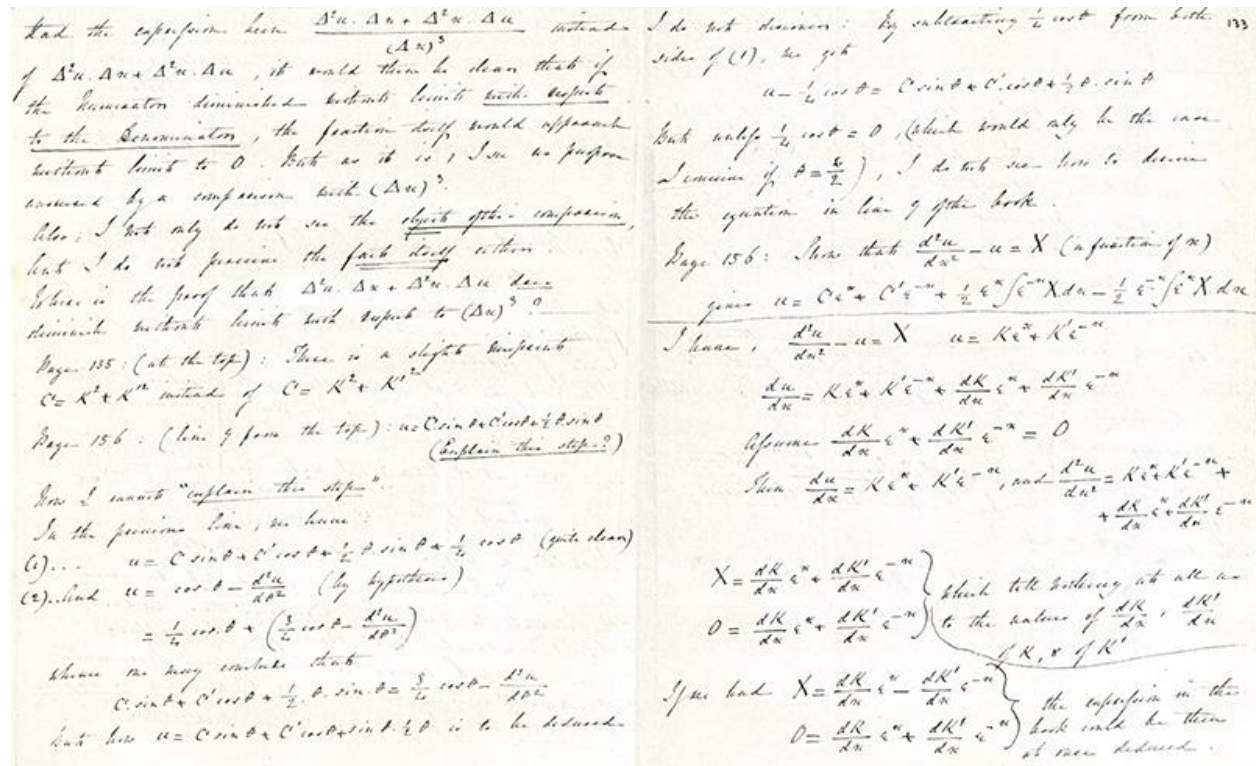 Had the expression been (Δ²u . Δx + Δ²x . Δu)/(Δx)³ instead
of Δ²u . Δx + Δ²x . Δu, it would then be clear that if
the Numerator diminished without limits with respect
to the Denominator, the fraction itself would approach
without limit to 0. But as it is, I see no purpose
answered by a comparison with (Δx)³.
Also; I not only do not see the object of the comparison,
but I do not perceive the fact itself either.
Where is the proof that Δ²u . Δx + Δ²x . Δu does
diminish without limits with respect to (Δx)³?
Page 135: (at the top): There is a slight misprint
C = K² + K'² instead of C = K² + K'²
Page 156: (line 9 from the top): u = C sin θ + C' cos θ + ½ θ. sin θ
(Explain this step?)
Now I cannot "explain this step".
In the previous line, we have:
(1).... u = C sin θ + C' cos θ + ½ . θ . sin θ + ¼ cos θ (quite clear)
(2). And u = cos. θ - d²u/dθ² (by hypothesis)
= ¼ cos. θ + (¾ cos θ - d²u/dθ²)
whence one may conclude that
C. sin θ + C' cos θ + ½ . θ . sin. θ = ¾ cos θ - d²u/dθ²
But how u = C sin θ + C' cos θ + sin θ . ½ θ is to be deduced
133
I do not discover: By subtracting ¼ cos θ from both
sides of (1), we get
u - ¼ cos θ = C sin θ + C'. cos θ + ½ θ. sin θ
But unless ¼ cos θ = 0, (which would only be the case
I conceive if θ = π/2), I do not see how to derive
the equation in line 9 of the book.
Page 156: Show that d²u/dx² - u = X (a function of x)
gives u = Cεˣ + C'ε⁻ˣ + ½ εˣ ∫ε⁻ˣ X dx - ½ ε⁻ˣ ∫εˣ X dx
I have, d²u/dx² - u = X u = Kεˣ + K'ε⁻ˣ
du/dx = Kεˣ + K'ε⁻ˣ + dK/dx εˣ + dK'/dx ε⁻ˣ
Assume dK/dx εˣ + dK'/dx ε⁻ˣ = 0
Then du/dx = Kεˣ + K'ε⁻ˣ, and d²u/dx² = Kεˣ + K'ε⁻ˣ +
+ dK/dx εˣ + dK'/dx ε⁻ˣ
X = dK/dx εˣ + dK'/dx ε⁻ˣ
0 = dK/dx εˣ + dK'/dx ε⁻ˣ
which tell nothing at all as
to the values of dK/dx, dK'/dx
of K, & of K'
If we had X = dK/dx εˣ - dK'/dx ε⁻ˣ
0 = dK/dx εˣ + dK'/dx ε⁻ˣ
the expression in the
book could be then
at once deduced.